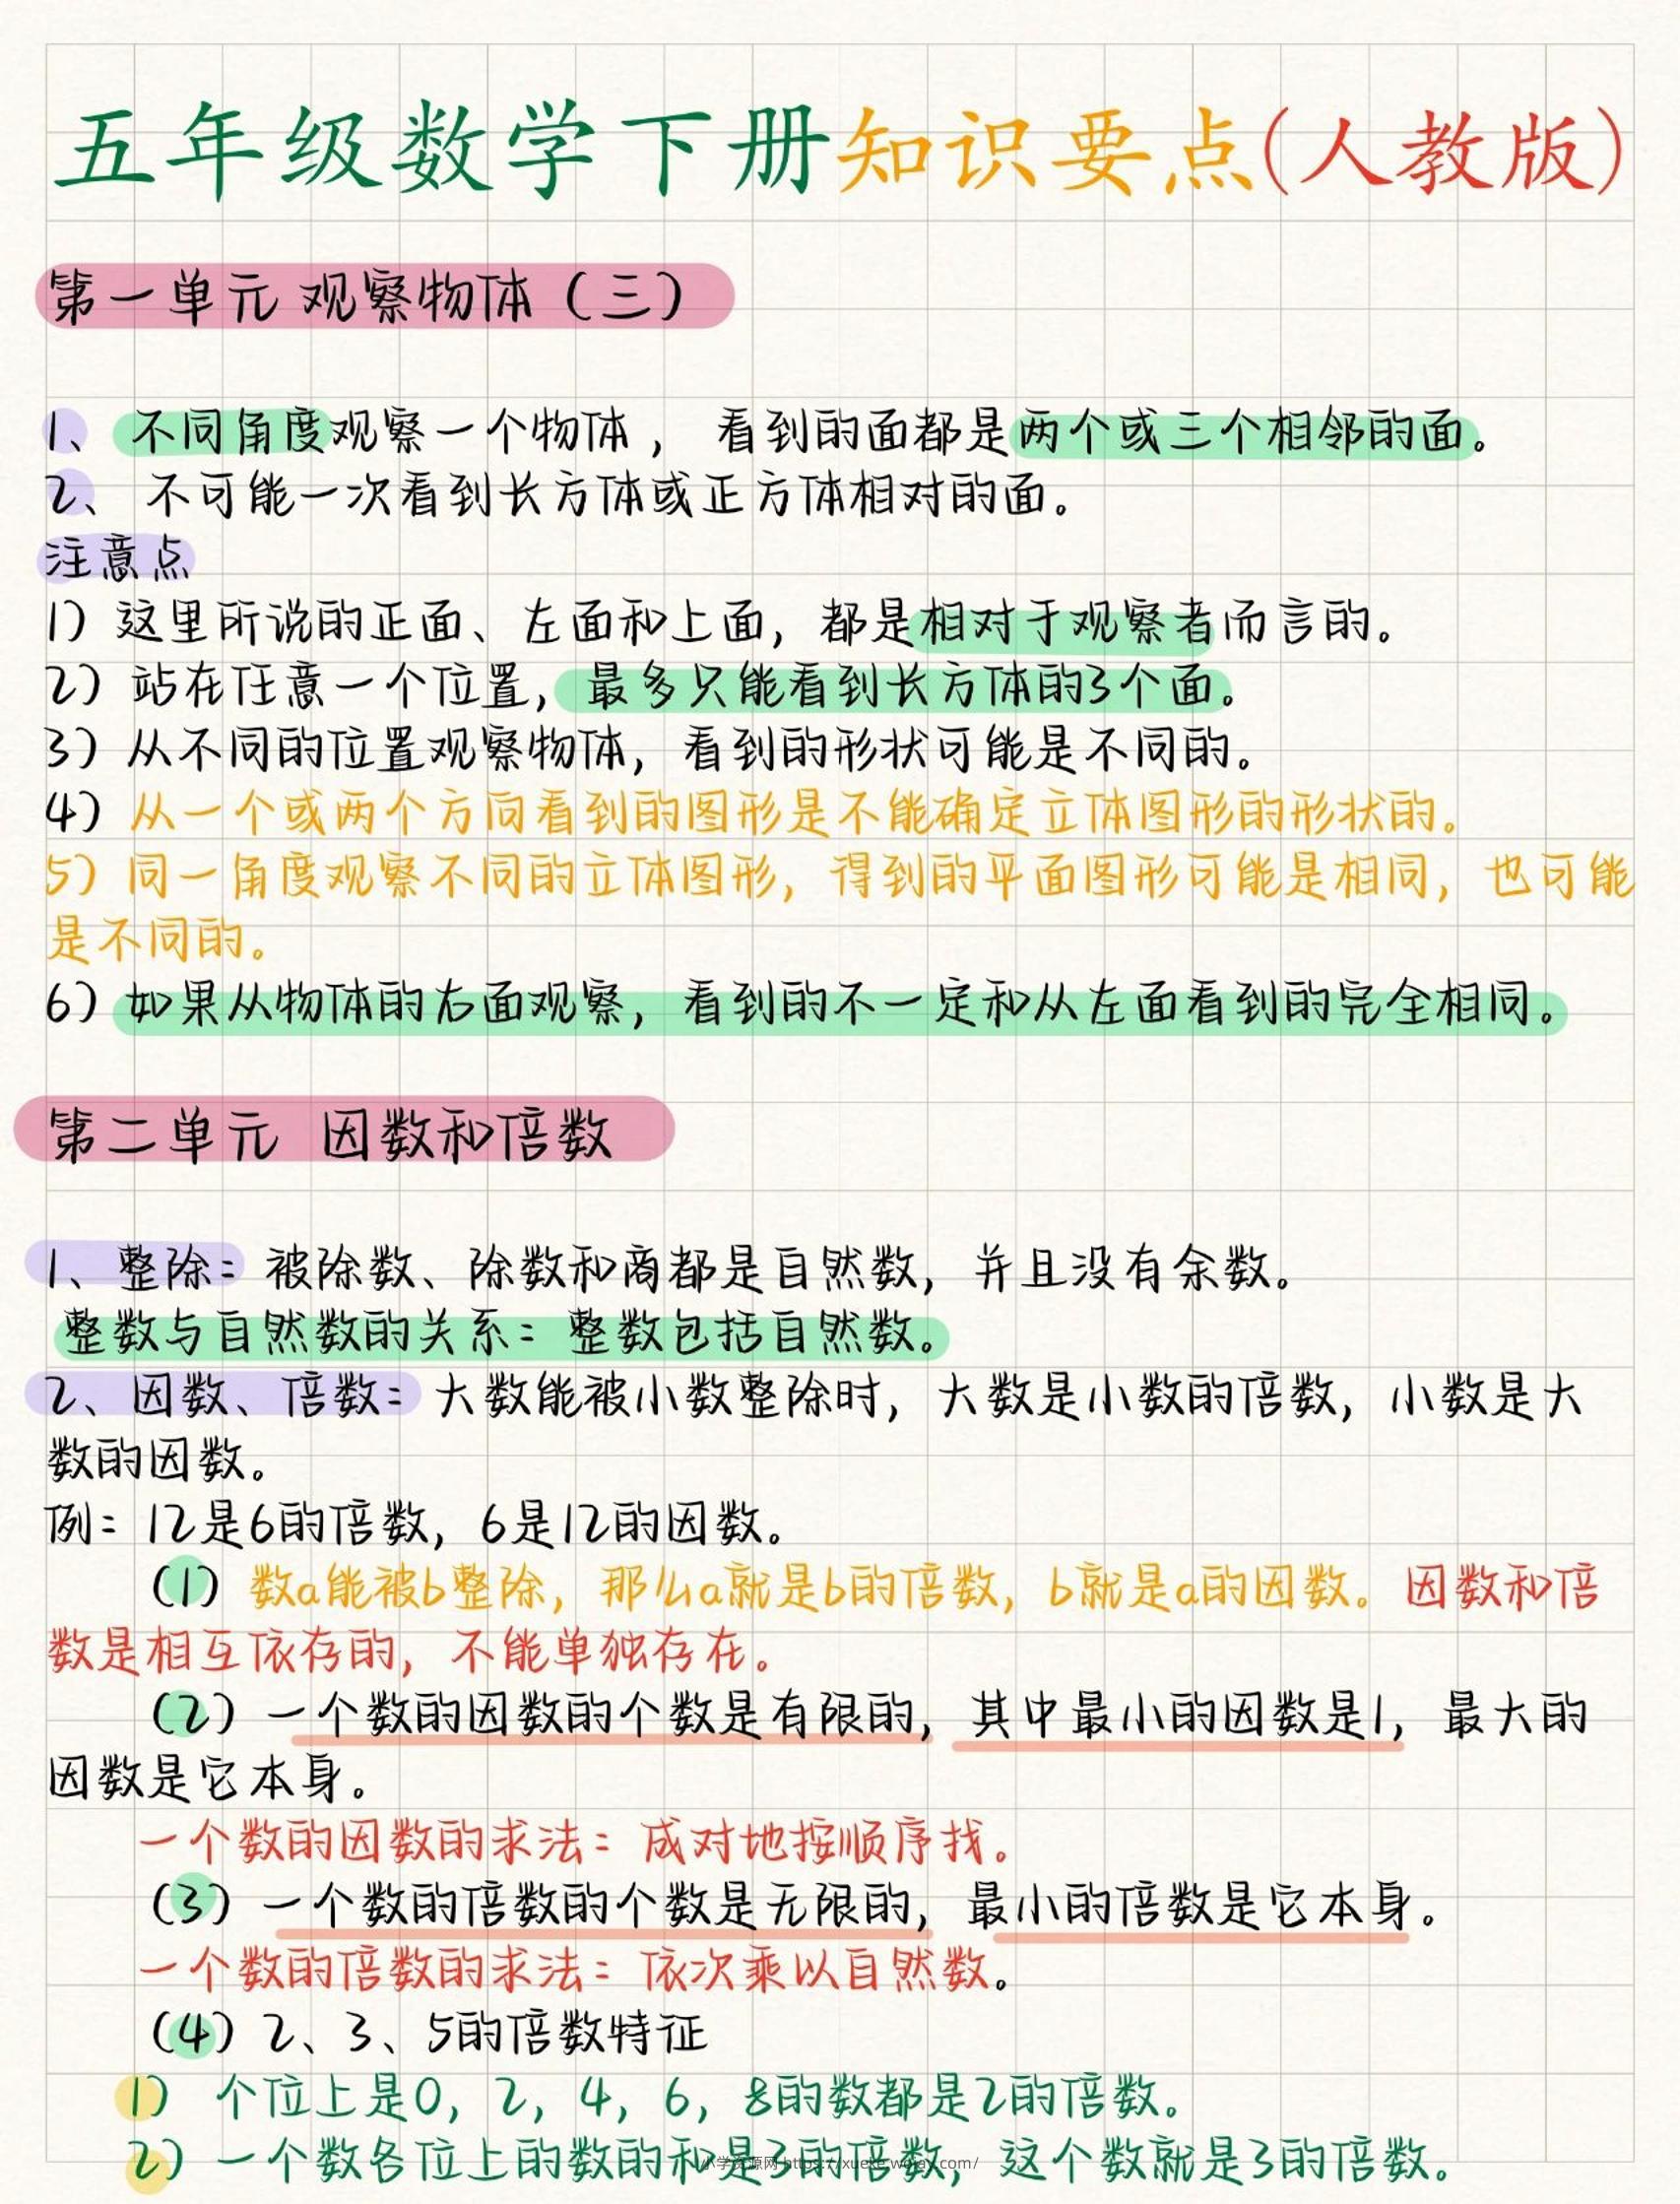 五年级数学下册知识要点(人教版)
第一单元 观察物体（三）
1、 不同角度观察一个物体， 看到的面都是两个或三个相邻的面。
2、 不可能一次看到长方体或正方体相对的面。
注意点
1）这里所说的正面、左面和上面，都是相对于观察者而言的。
2）站在任意一个位置，最多只能看到长方体的3个面。
3）从不同的位置观察物体，看到的形状可能是不同的。
4）从一个或两个方向看到的图形是不能确定立体图形的形状的。
5）同一角度观察不同的立体图形，得到的平面图形可能是相同，也可能
是不同的。
6）如果从物体的右面观察，看到的不一定和从左面看到的完全相同。
第二单元 因数和倍数
1、整除：被除数、除数和商都是自然数，并且没有余数。
整数与自然数的关系：整数包括自然数。
2、因数、倍数：大数能被小数整除时，大数是小数的倍数，小数是大
数的因数。
例：12是6的倍数，6是12的因数。
（1）数a能被b整除，那么a就是b的倍数，b就是a的因数。因数和倍
数是相互依存的，不能单独存在。
（2）一个数的因数的个数是有限的，其中最小的因数是1，最大的
因数是它本身。
一个数的因数的求法：成对地按顺序找。
（3）一个数的倍数的个数是无限的，最小的倍数是它本身。
一个数的倍数的求法：依次乘以自然数。
（4）2、3、5的倍数特征
1） 个位上是0，2，4，6，8的数都是2的倍数。
2）一个数各位上的数的和是3的倍数，这个数就是3的倍数。